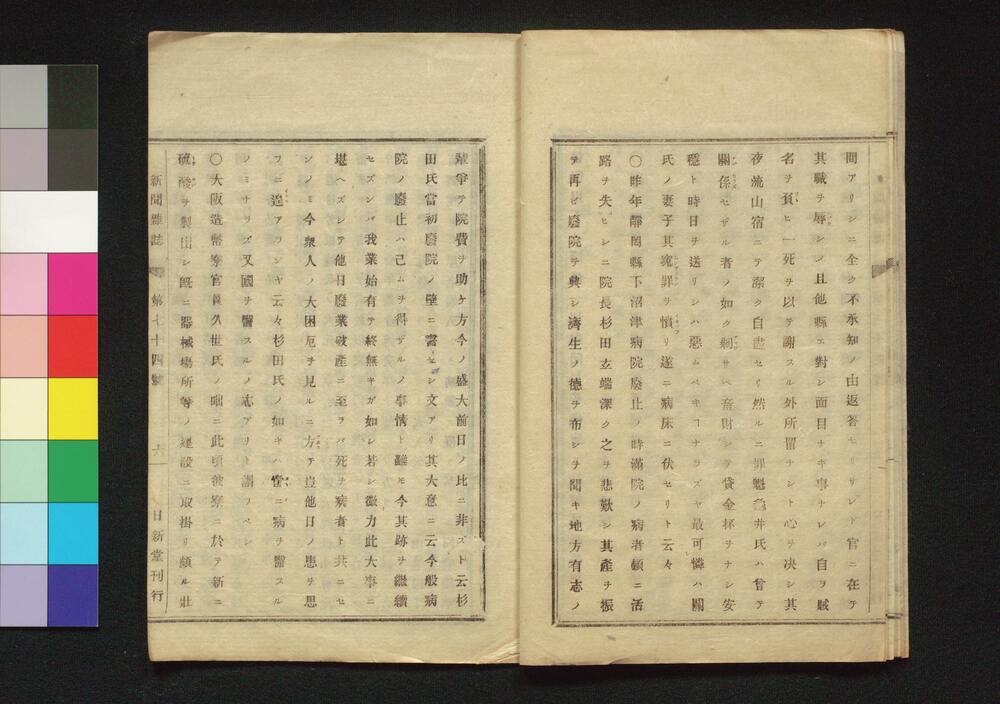 間アリシニ全ク不承知ノ由返答セリサレド官ニ在テ
其職ヲ辱シメ且他縣エ對シ面目ナキ事ナレバ自ヲ賊
名ヲ負ヒ一死ヲ以テ謝スル外所置ナシト心ヲ决シ其
夜流山宿ニテ潔ク自盡セリ然ルニ罪魁 井氏ハ曾テ
關係セザル者ノ如ク剰サヘ斎財シテ貸金抔ヲナシ安
穩ト時日ヲ送リシハ惡ムベキコナラズヤ最可憐ハ關
氏ノ妻子其寃罪ヲ憤リ遂ニ病床ニ伏セリト云々
〇昨年靜岡縣下沼津病院廢止ノ時滿院ノ病者頓ニ活
路ヲ失ヒシニ院長杉田玄端深ク之ヲ悲歎シ其產ヲ振
テ再ビ廢院ヲ興シ濟生ノ德ヲ布シヲ聞キ地方有志ノ
輩爭テ院費ヲ助ケ方今ノ盛大前日ノ比ニ非ズト云杉
田氏當初廢院ノ壁ニ書セシ文アリ其大意ニ云今般病
院ノ廢止ハ己ムヲ得ザルノ事情ト雖モ今其跡ヲ繼續
セズンバ我業始有テ終無キガ如シ若シ微力此大事ニ
堪ヘズシテ他日廢業破產ニ至ラバ死テ病者ト共ニセ
シノミ今衆人ノ大困厄ヲ見ルニ方テ豈他日ノ患ヲ思
フニ遑アランヤ云々杉田氏ノ如キハ啻ニ病ヲ醫スル
ノミナラズ又國ヲ醫スルノ志アリト謂フベシ
〇大阪造幣寮官員久世氏ノ咄ニ此頃彼寮ニ於テ新ニ
硫酸ヲ製出シ旣ニ器械場所等ノ建設ニ取掛リ頗ル壯
新聞雜誌 第七十四號 六 日新堂刊行